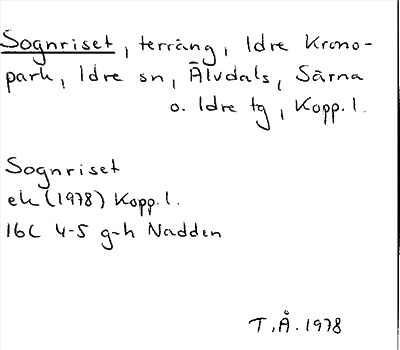 Sognriset, terräng, Idre Krono-
park, Idre sn, Älvdals, Särna
o. Idre tg, Kopp. l.
Sognriset
ek (1978) Kopp. l.
16C 4-5 g-h Nadden
T.Å. 1978